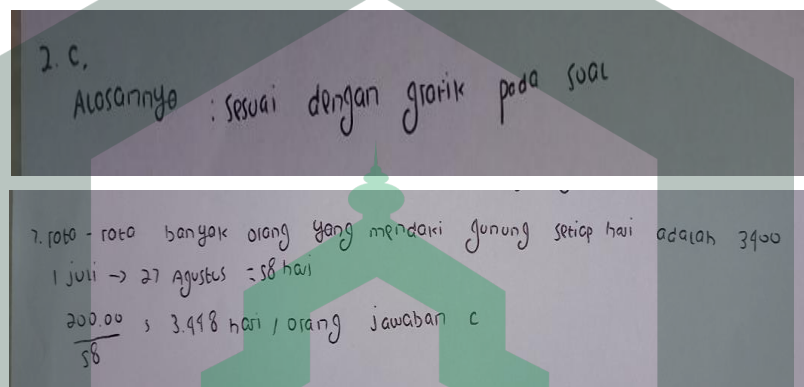 2. C.
Alosannya : Sesuai dengan grafik pada soal
7. rata - rata banyak orang yang mendaki gunung setiap hari adalah 3400
1 juli -> 27 Agustus = 58 hari
200.00 s 3.448 hari / orang jawaban c
58